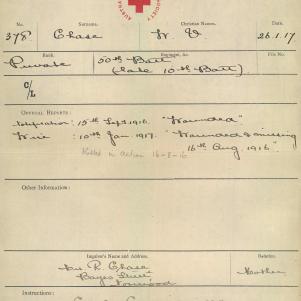 SOCIETY
No.
Surname.
Christian Names.
378
Chase
W. V
26.1.17
Rank.
Regiment, &c.
File No.
Private
50th Batt
(late 10th Batt)
C/L
OFFICIAL REPORTS:
Notification: 15th Sept 1916. "Wounded".
Wire: 10th Jan 1917. "Wounded & missing
16th Aug. 1916"
Killed in action 16-8-16
Other Information:
Inquirer's Name and Address.
Relation.
Mrs. R. Chase
Mother
Norwood
Instructions: